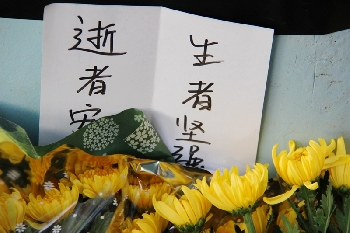 生者坚强
逝者安